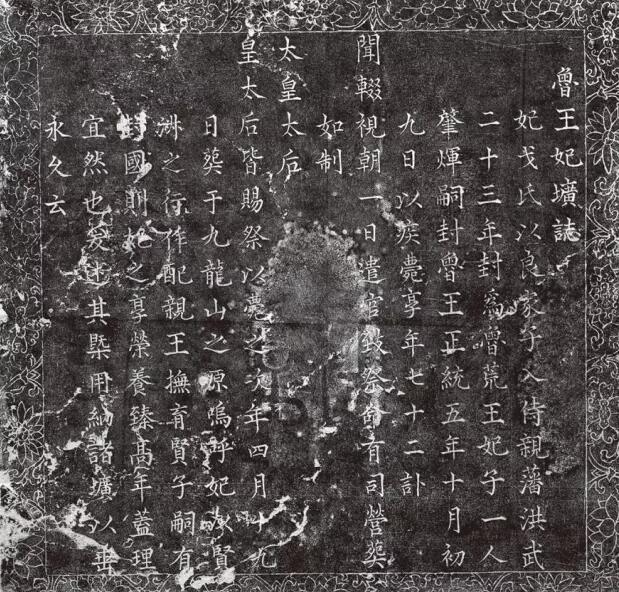 魯王妃壙誌
妃戈氏以良家子入侍親藩洪武
二十三年封為魯荒王妃子一人
肇煇嗣封魯王正統五年十月初
九日以疾薨享年七十二訃
聞輟視朝一日遣官致祭命有司營葬
如制
太皇太后
皇太后皆賜祭以薨之次年四月十九
日葬于九龍山之原嗚呼妃以賢
淋之行作配親王撫育賢子嗣有
封國則妃之享榮養臻髙年蓋理
宜然也爰述其槩用納諸壙以垂
永久云